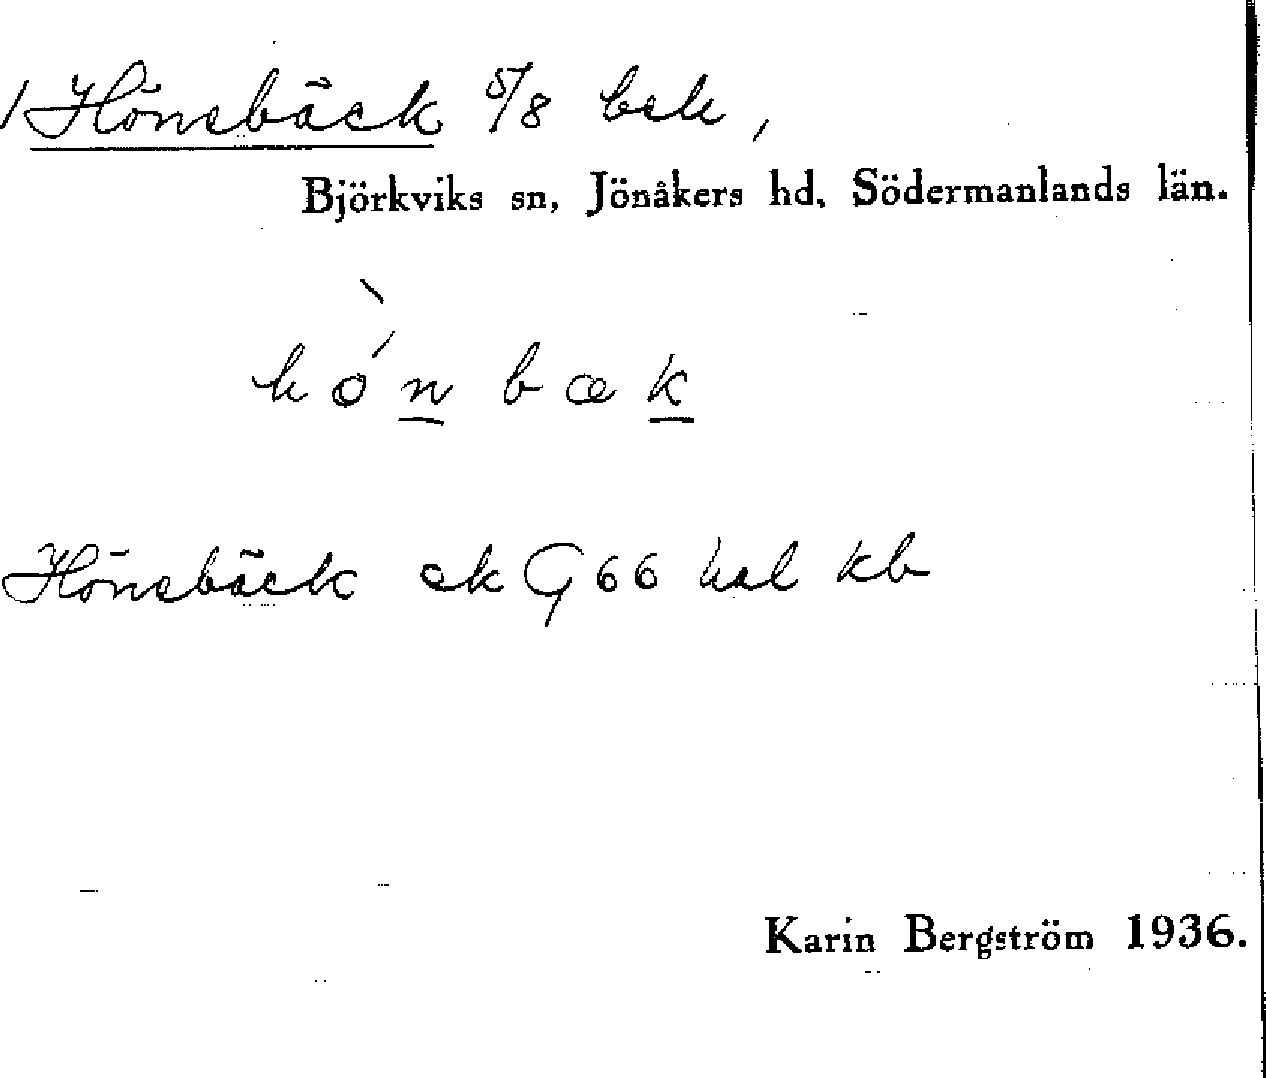 Hönsbäck 5/8 bek,
Björkviks sn, Jönåkers hd, Södermanlands län.
hǿn bæk
Hönsbäck ek G 66 hal kb
Karin Bergström 1936.